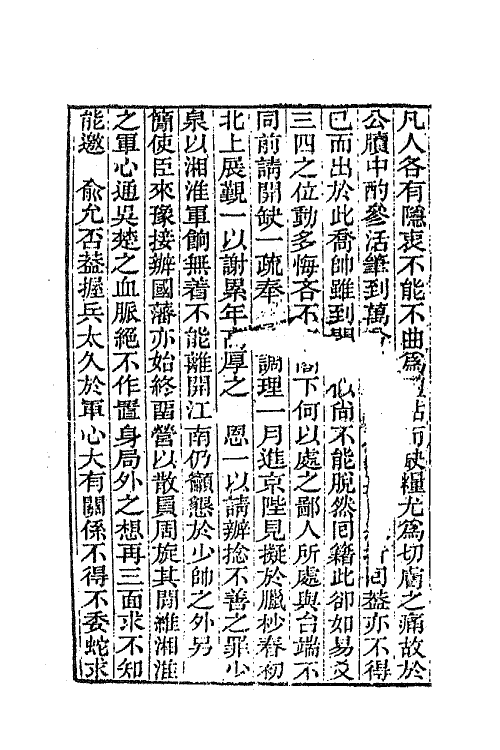 凡人各有隱衷不能不曲爲而缺糧尤爲切膚之痛故於
公牘中酌參活筆到萬行間葢亦不得
已而出於此喬帥雖到尚不能脫然囘籍此卻如易爻
三四之位動多悔吝不閣下何以處之鄙人所處與台端不
同前請開缺一疏奉調理一月進京陛見擬於臘杪春初
北上展覲一以謝累年高厚之　恩一以請辦捻不善之罪少
泉以湘淮軍餉無着不能離開江南仍籲懇於少帥之外另
簡使臣來豫接辦國藩亦始終畱營以散員周旋其閒維湘淮
之軍心通吳楚之血脈絕不作置身局外之想再三面求不知
能邀　俞允否葢握兵太久於軍心大有關係不得不委蛇求